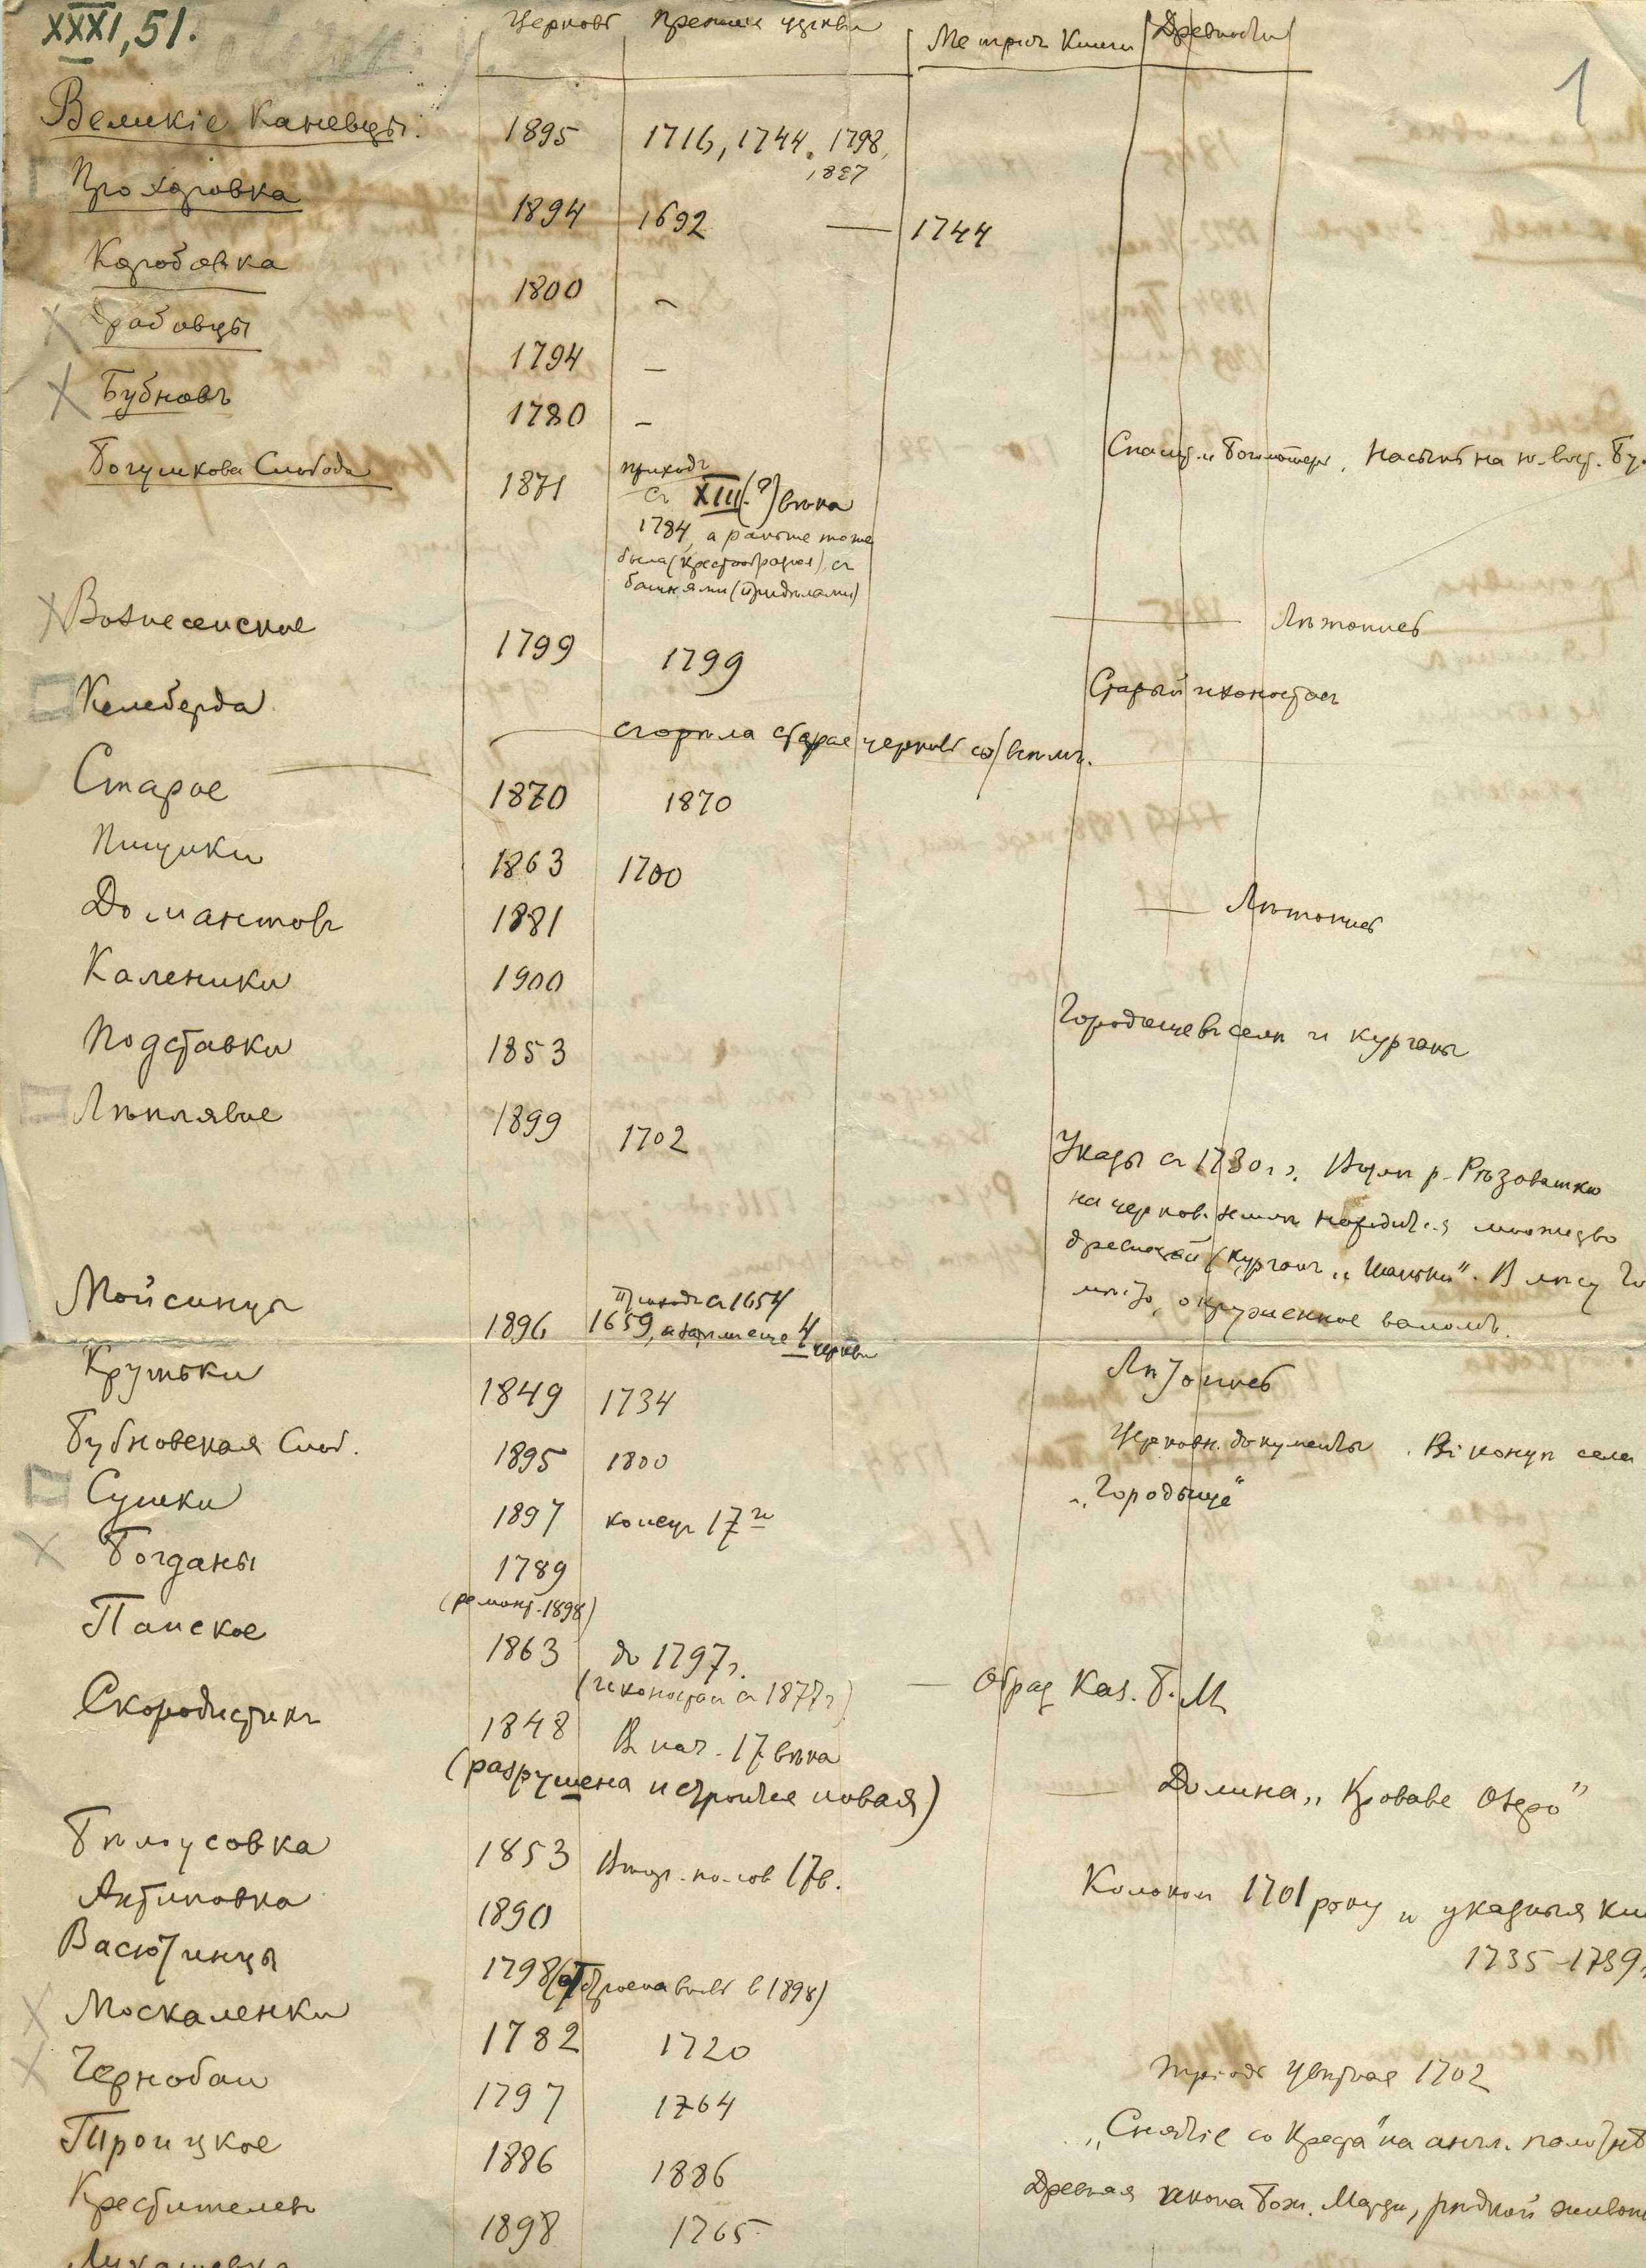 XXXI, 51.
Церковь Прежния церкви Метрич. Книги Древности
1
Великіе Каневцы. 1895 1716, 1744, 1798,
1827
Прохоровка 1894 1692 — 1744
Коробовка 1800 –
Драбовцы 1794 –
Бубновъ 1780 –
Богушкова Слобода 1871 приходъ
съ XIII (?) вѣка
1784, а раньше тоже
была (крестообразная), съ
башнями (придѣлами)
Спасит. и Богоматери, насыпь на ю-вост.
Вознесенское 1799 1799 — Лѣтопись
Келеберда Старый иконостасъ
сгорѣла старая церковь со всѣмъ.
Старое 1870 1870
Пищики 1863 1700
Домантовъ 1881 — Лѣтопись
Каленики 1900
Подставки 1853 Городище въ селѣ и курганы
Лѣплявое 1899 1702
Указы съ 1730 г. р. Рѣзоваткю
на церков. землѣ находится множество
древностей (курганъ „ ". В лѣсу
мѣсто, окруженное валомъ.
Мойсинцы 1896 Приходъ съ 1654
1659, а затѣмъ еще 4 церкви
Крутьки 1849 1734 Лѣтопись
Бубновская Слоб. 1895 1800 Церковн. документы. Въ концѣ села
„Городище"
Сушки 1897 конецъ 17го
Богданы 1789
(ремонт. 1898)
Панское 1863 до 1797 г.
(иконостас съ 1877 г) — Образ Каз. Б. М
Скородистикъ 1848 В нач. 17 вѣка
(разрушена и строится новая) — Долина „Кроваве Озеро"
Бѣлоусовка 1853 Втор. полов 17 в.
Антиповка 1890 Колокол 1701 року и указныя
1735-1789
Васютинцы 1798 в 1898)
Москаленки 1782 1720
Чернобаи 1797 1764 Тріодь Цвѣтная 1702
Троицкое 1886 1886 „Снятіе со Креста" на англ. полотнѣ
Крестителево 1898 1765 Древняя икона Бож. Матери, рѣдкой
Лукашевка